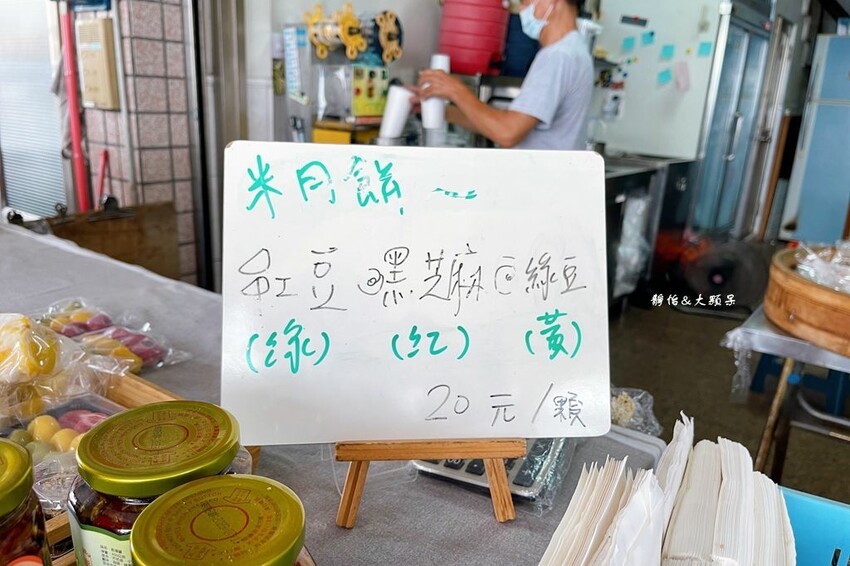 米月餅~
紅豆 黑芝麻 綠豆
(綠) (紅) (黃)
20元/顆
靜怡&大顆呆